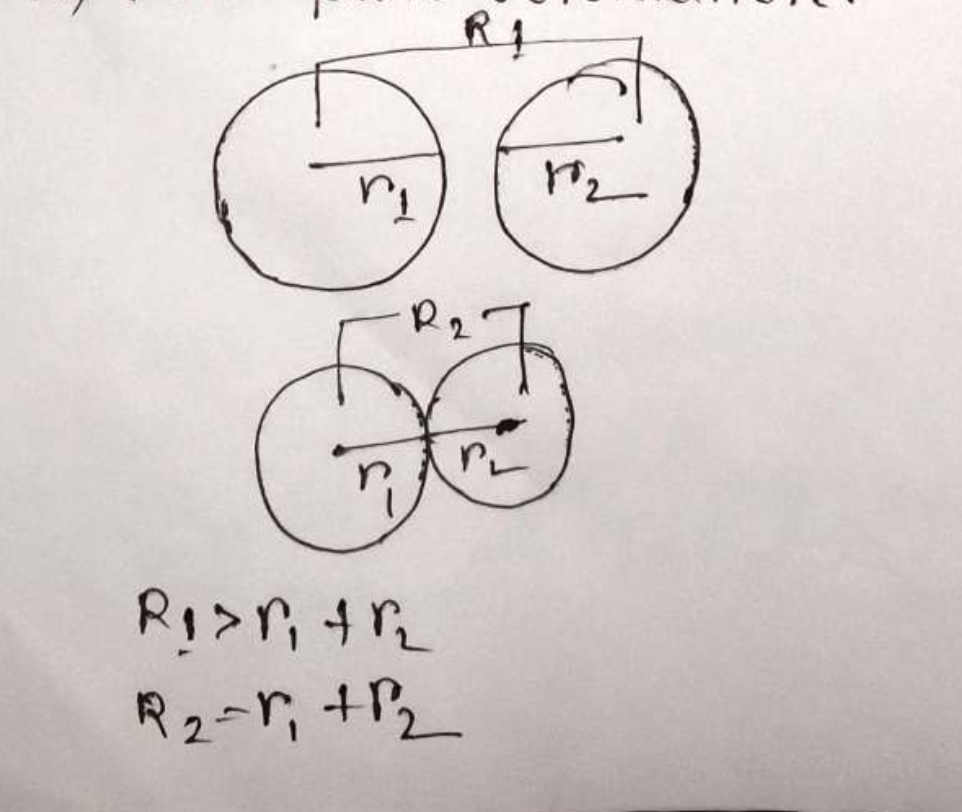 R1
r1
r2
R2
r1
r2
R1 > r1 + r2
R2 = r1 + r2